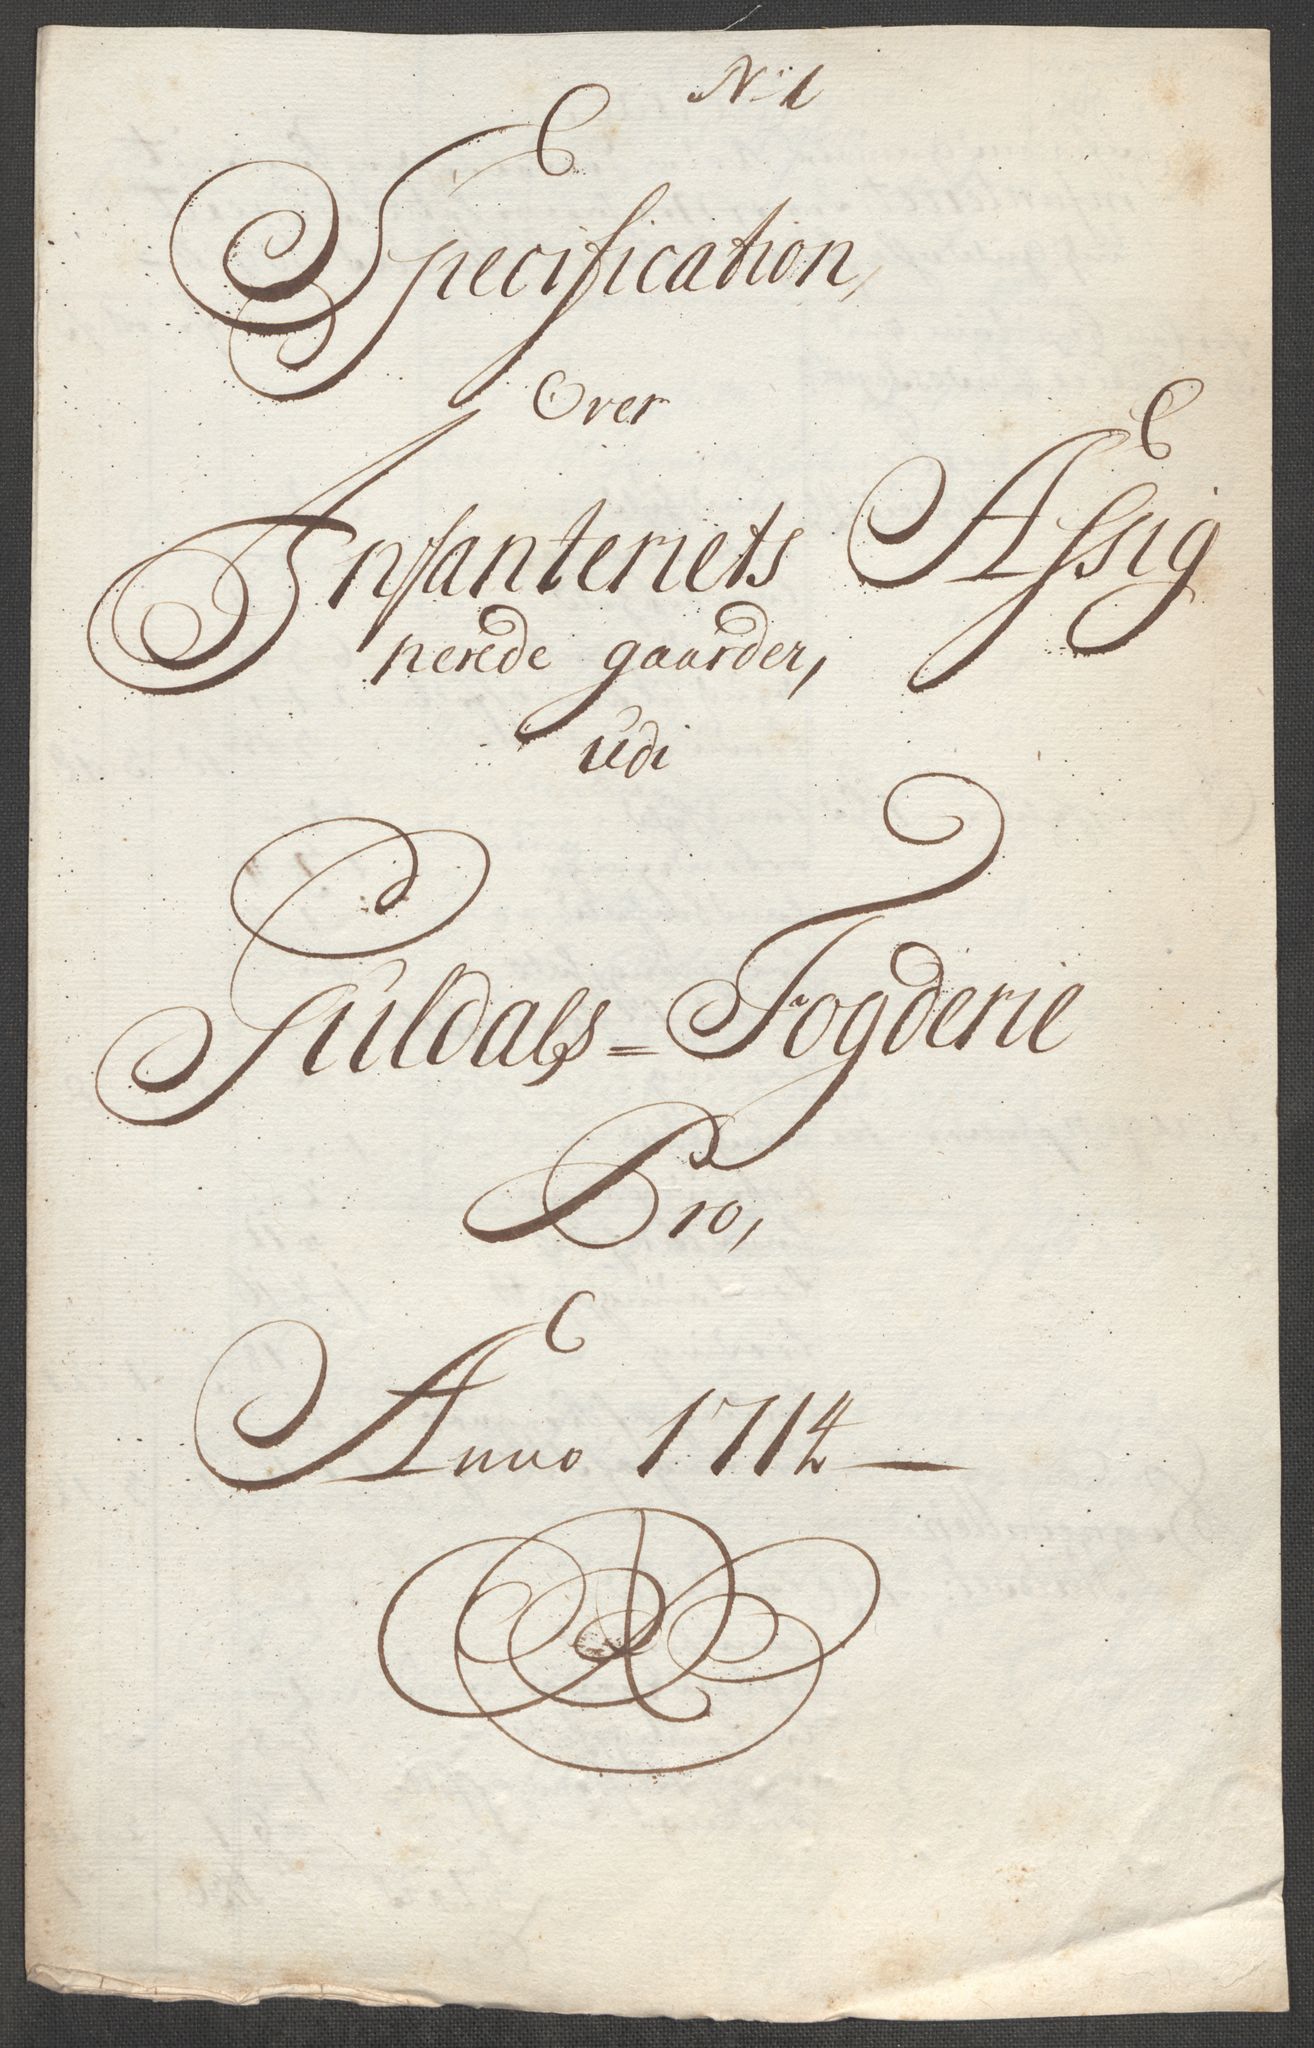 No 1
Specification,
Over
Infanteriets Assig
nerede gaarder,
udi
Guldals=Fogderie
Pro,
Anno 1714